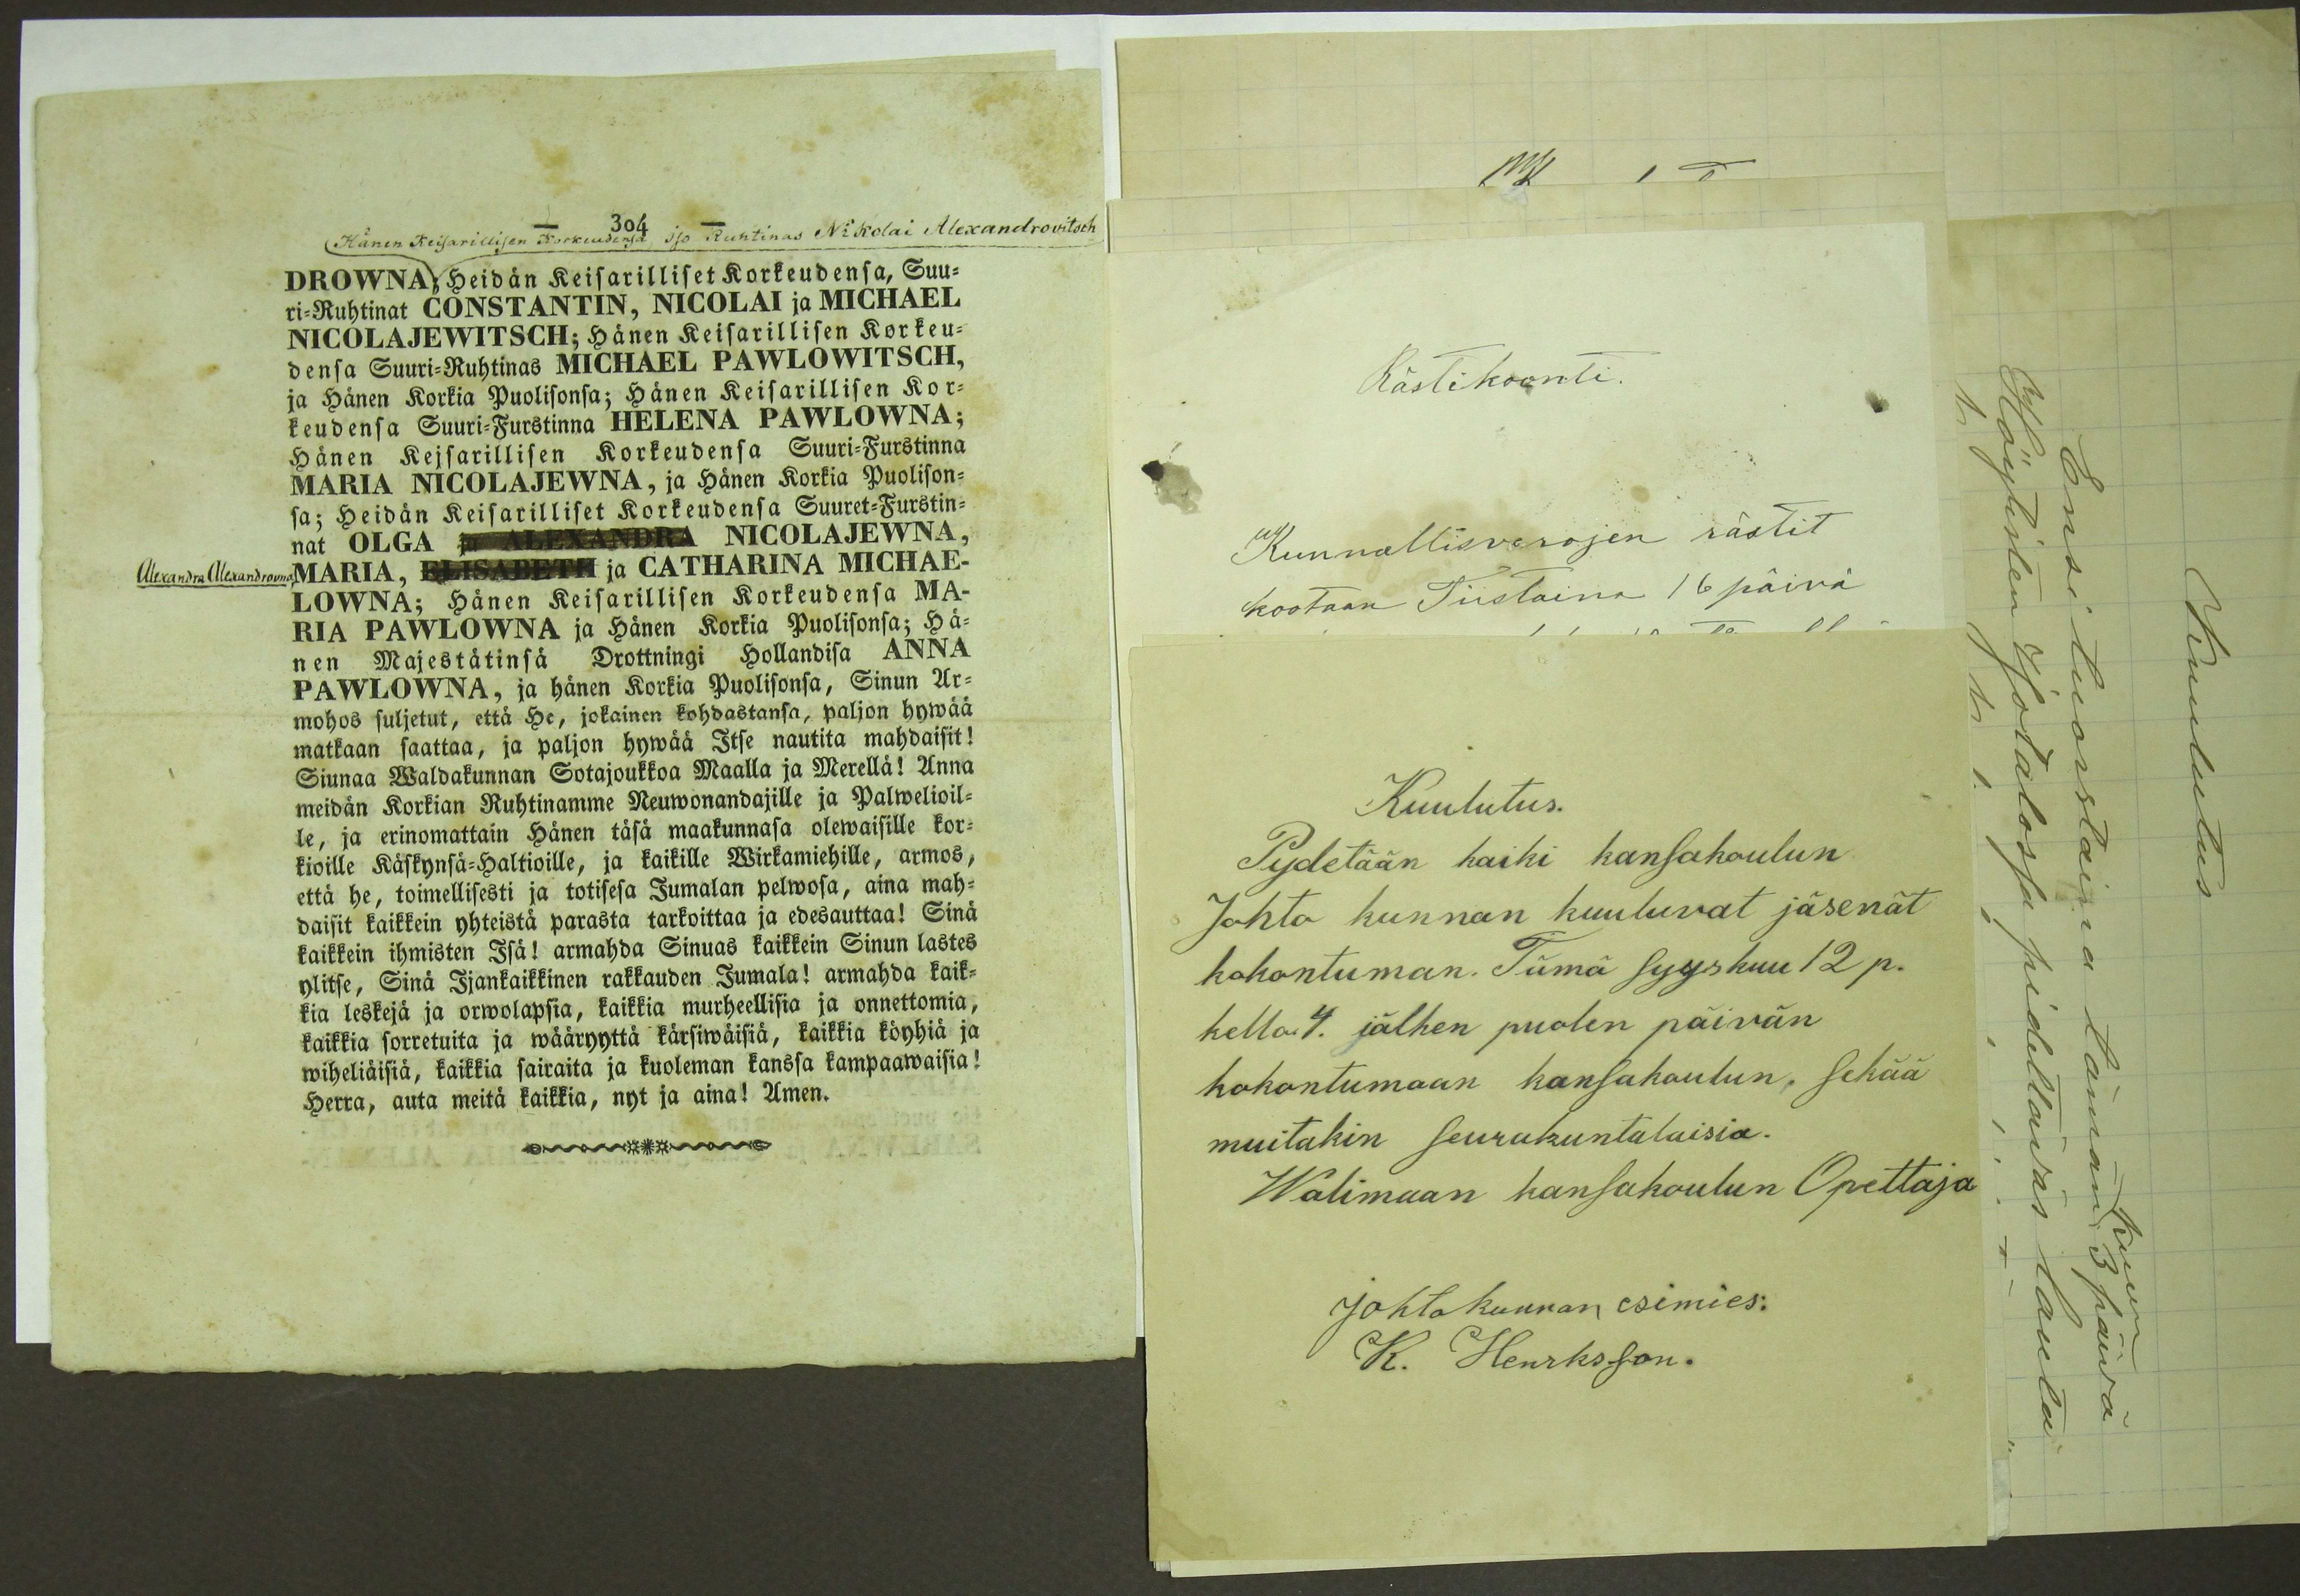 — 304 —
Hänen Keisarillisen Korkeudensa, iso Ruhtinas Nikolai Alexandrovitsch
DROWNA; Heidän Keisarilliset Korkeudensa, Suu-
ri-Ruhtinat CONSTANTIN, NICOLAI ja MICHAEL
NICOLAJEWITSCH; Hänen Keisarillisen Korkeu-
densa Suuri-Ruhtinas MICHAEL PAWLOWITSCH,
ja Hänen Korkia Puolisonsa; Hänen Keisarillisen Kor-
keudensa Suuri-Furstinna HELENA PAWLOWNA;
Hänen Kejsarillisen Korkeudensa Suuri-Furstinna
MARIA NICOLAJEWNA, ja Hänen Korkia Puolison-
sa; Heidän Keisarilliset Korkeudensa Suuret-Furstin-
nat OLGA ja ALEXANDRA NICOLAJEWNA,
Alexandra Alexandrovna,
MARIA, ELISABETH ja CATHARINA MICHAE-
LOWNA; Hänen Keisarillisen Korkeudensa MA-
RIA PAWLOWNA ja Hänen Korkia Puolisonsa; Hä-
nen Majestätinsä Drottningi Hollandisa ANNA
PAWLOWNA, ja hänen Korkia Puolisonsa, Sinun Ar-
mohos suljetut, että He, jokainen kohdastansa, paljon hywää
matkaan saattaa, ja paljon hywää Itse nautita mahdaisit!
Siunaa Waldakunnan Sotajoukkoa Maalla ja Merellä! Anna
meidän Korkian Ruhtinamme Neuwonandajille ja Palwelioil-
le, ja erinomattain Hänen täsä maakunnasa olewaisille kor-
kioille Käskynsä-Haltioille, ja kaikille Wirkamiehille, armos,
että he, toimellisesti ja totisesa Jumalan pelwosa, aina mah-
daisit kaikkein yhteistä parasta tarkoittaa ja edesauttaa! Sinä
kaikkein ihmisten Isä! armahda Sinuas kaikkein Sinun lastes
ylitse, Sinä Ijankaikkinen rakkauden Jumala! armahda kaik-
kia leskejä ja orwolapsia, kaikkia murheellisia ja onnettomia,
kaikkia sorretuita ja wääryyttä kärsiwäisiä, kaikkia köyhiä ja
wiheliäisiä, kaikkia sairaita ja kuoleman kanssa kampaawaisia!
Herra, auta meitä kaikkia, nyt ja aina! Amen.
Rästikoonti.
Kunnallisverojen rästit
kootaan Tiistaina 16 päivä
Kuulutus.
Pydetään kaiki kansakoulun
Johto kunnan kuuluvat jäsenät
kokontuman. Tämä syyskuu 12 p.
kello 4. jälken puolen päivän
kokontumaan kansakoulun. sekää
muitakin seurakuntalaisia.
Walimaan kansakoulun Opettaja
johtokunnan esimies:
K. Henrksson.
Kuulutus
Ensi tuorstaina tämän kuun 3 päivä
pidettävän